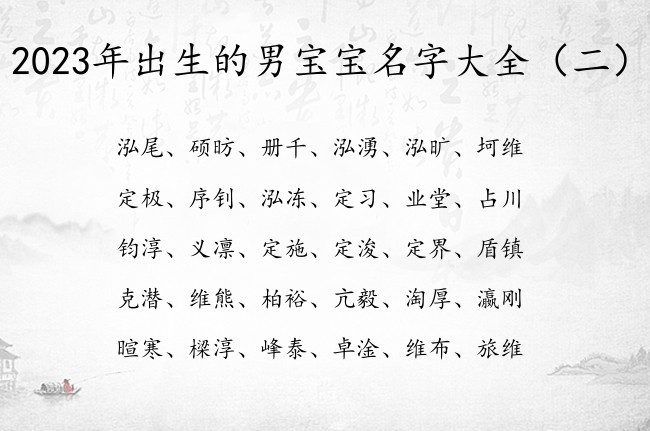 2023年出生的男宝宝名字大全（二）
泓尾、硕昉、册千、泓湧、泓旷、坷维
定极、序钊、泓冻、定习、业堂、占川
钧淳、义凛、定施、定浚、定界、盾镇
克潜、维熊、柏裕、亢毅、淘厚、瀛刚
暄寒、樑淳、峰泰、卓淦、维布、旅维